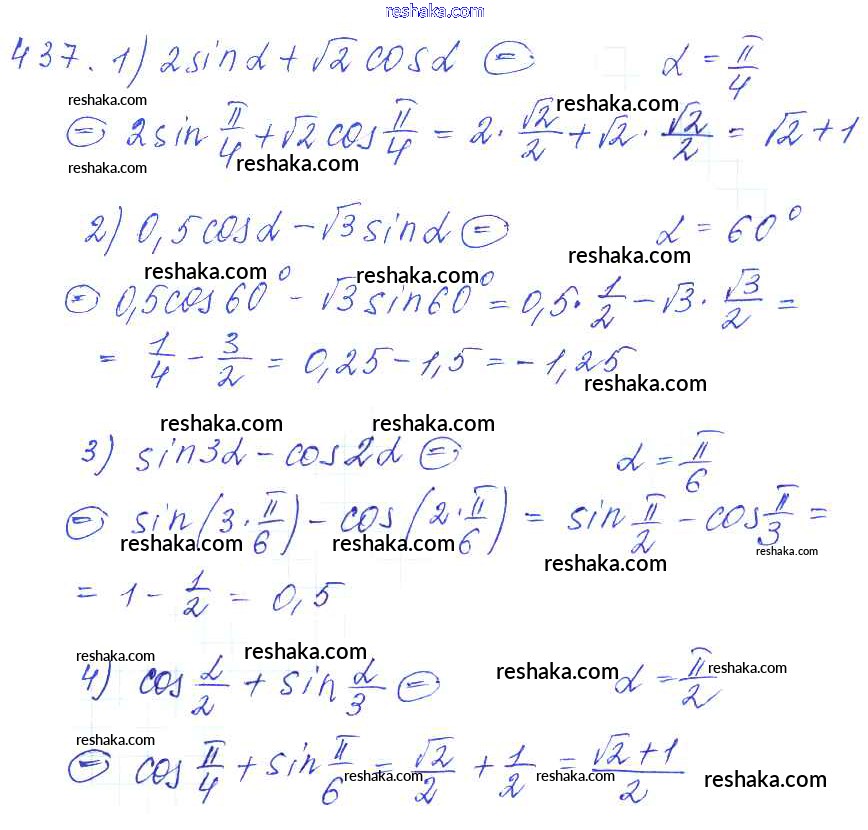 reshaka.com
437. 1) 2sinα + √2 cosα = α = π/4
reshaka.com reshaka.com
= 2sin π/4 + √2 cos π/4 = 2 · √2/2 + √2 · √2/2 = √2 + 1
reshaka.com reshaka.com
2) 0,5cosα - √3 sinα = α = 60°
reshaka.com reshaka.com reshaka.com
= 0,5cos60° - √3 sin60° = 0,5 · 1/2 - √3 · √3/2 =
= 1/4 - 3/2 = 0,25 - 1,5 = -1,25
reshaka.com
reshaka.com reshaka.com
3) sin3α - cos2α = α = π/6
= sin(3 · π/6) - cos(2 · π/6) = sin π/2 - cos π/3 =
reshaka.com reshaka.com reshaka.com reshaka.com
= 1 - 1/2 = 0,5
reshaka.com reshaka.com reshaka.com reshaka.com
4) cos α/2 + sin α/3 = α = π/2
reshaka.com
= cos π/4 + sin π/6 = √2/2 + 1/2 = (√2 + 1)/2
reshaka.com reshaka.com reshaka.com